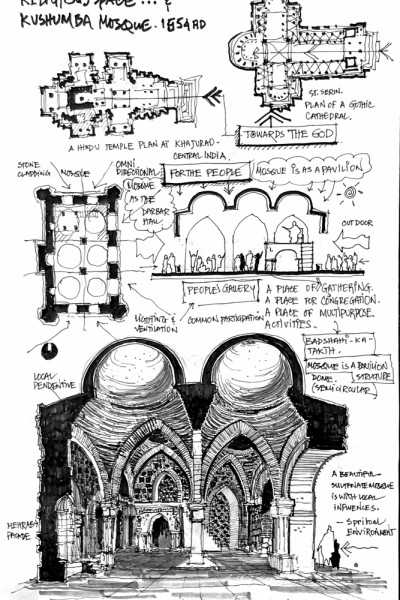 RELIGIOUS SPACE ... &
KUSHUMBA MOSQUE. 1554 AD
ST. SERIN.
PLAN OF A GOTHIC
CATHEDRAL.
A HINDU TEMPLE PLAN AT KHAJURAO-
CENTRAL INDIA.
TOWARDS THE GOD
STONE
CLADDING
MOSQUE
OMNI
DIRECTIONAL
MOSQUE
AS THE
DARBAR
HALL
FOR THE PEOPLE
MOSQUE IS AS A PAVILION
OUT DOOR
PEOPLE'S GALLERY
COMMON PARTICIPATION
LIGHTING &
VENTILATION
A PLACE OF GATHERING.
A PLACE FOR CONGREGATION.
A PLACE OF MULTIPURPOSE
ACTIVITIES.
BADSHAHI-KA-
TAKTH.
MOSQUE IS A PAVILION
DOME. STRUCTURE
(SEMI CIRCULAR)
LOCAL
PENDENTIVE
MEHRAB
FACADE
A BEAUTIFUL
SULTANATE MOSQUE
IS WITH LOCAL
INFLUENCES.
- Spritual
ENVIROMENT